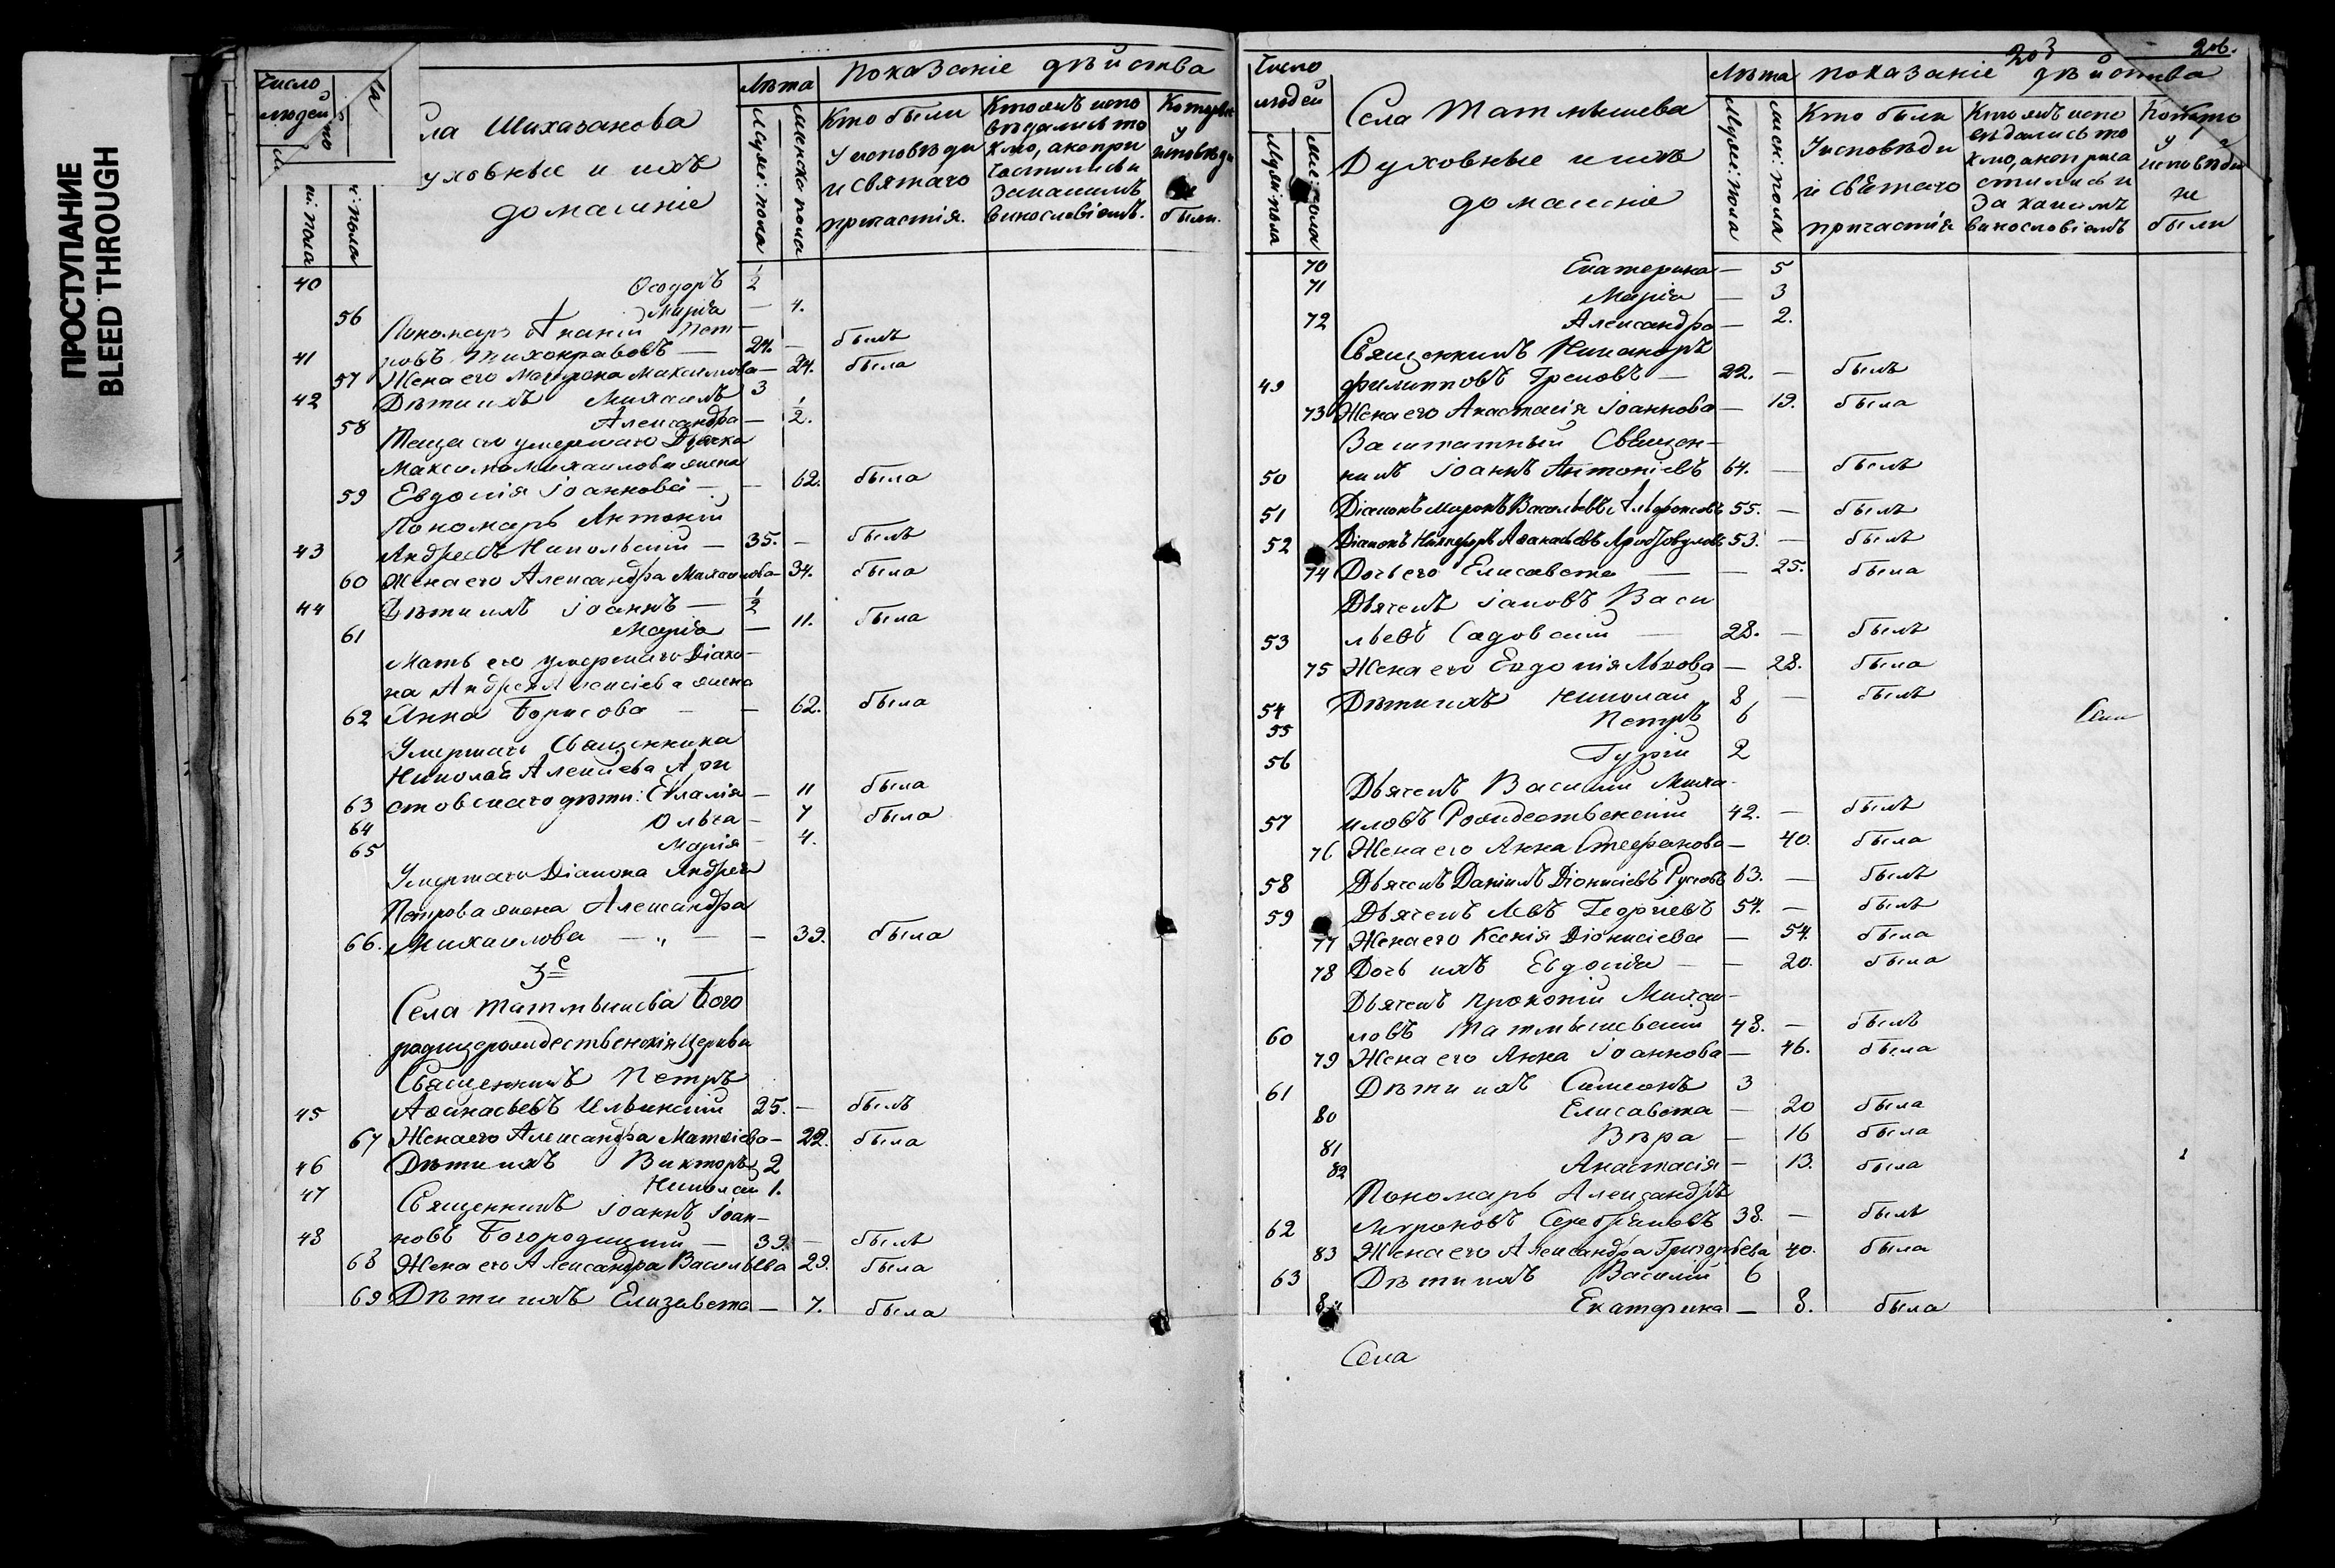 ПРОСТУПАНИЕ
BLEED THROUGH
Число людей
Села Шихазанова
Духовные и ихъ
домашніе
Лѣта
Показаніе дѣйства
Мужес: пола
Женска пола
Кто были
у исповѣди
и святаго
причастія.
Кто изъ испо
вѣдались то
кмо, а не при
частились и
за какимъ
винословіемъ.
Которые
у
исповѣди
не
были.
40 Ѳеодоръ 1/2
56 Марія — 4.
Пономарь Ананій
41 новъ Тихонравовъ — 24. — былъ
57 Жена его Матрона Максимова — 24. была
42 Дѣти ихъ Михаилъ 3
58 Александра — 1/2.
Теща его умершаго Дьячка
Максима Михайлова жена
59 Евдокія Іоаннова — — 62. была
Пономарь Антоній
43 Андреевъ Никольскій — 35. — былъ
60 Жена его Александра Михаилова — 34. была
44 Дѣти ихъ Іоаннъ — 1/2
61 Марія — 11. была
Мать его умершаго Діако-
на Андрея Алексіева жена
62 Анна Борисова — — 62. была
Умершаго Священника
Николая Алексіева Ари
63 стовскаго дѣти: Евлалія — 11 была
64 Ольга — 7 была
65 Марія — 4.
Умершаго Діакона Андрея
Петрова жена Александра
66. Михаилова — „ — — 39. была
3е
Села Татмышева Бого
родицерождественскія Церкви
Священникъ Петръ
45 Аѳанасьевъ Ильинскій 25. — былъ
67 Жена его Александра Матѳіева — 22. была
46 Дѣти ихъ Викторъ 2
47 Николай 1.
Священникъ Іоаннъ Іоан-
48 новъ Богородицкій — 39. — былъ
68 Жена его Александра Васильева 29. была
69 Дѣти ихъ Елизавета — 7. была
203
206.
Число людей
Мужес: пола
Села Татмышева
Духовные и ихъ
домашніе
Лѣта
показаніе дѣйства
Мужес: пола
женск: пола
Кто были
у исповѣди
и святаго
причастія
Кто изъ испо
вѣдались то
кмо, а не прича
стились и
за какимъ
винословіемъ
Которые
у
исповѣди
не
были
70 Екатерина — 5
71 Марія — 3
72 Александра — 2.
Священникъ Никаноръ
49 Филипповъ Грековъ — 22. — былъ
73 Жена его Анастасія Іоаннова — 19. была
Заштатный Священ-
50 никъ Іоаннъ Антоніевъ 64. — былъ
51 Діаконъ Миронъ Васильевъ Альфонсовъ 55. — былъ
52 Діаконъ Никифоръ Аѳанасьевъ 53. — былъ
74 Дочь его Елисавета — — 25. была
Дьячекъ Іаковъ Васи
53 льевъ Садовскій — 28. — былъ
75 Жена его Евдокія Львова — 28. была
54 Дѣти ихъ Николай 8 — былъ
55 Петръ 6
56 Гурій 2
Села
Дьячекъ Василій Миха-
57 иловъ Рождественскій 42. — былъ
76 Жена его Анна Стефанова — 40. была
58 Дьячекъ Даніилъ Діонисіевъ Русовъ 63. — былъ
59 Дьячекъ Левъ Георгіевъ 54. — былъ
77 Жена его Ксенія Діонисіева — 54. была
78 Дочь ихъ Евдокія — — 20. была
Дьячекъ Прокопій Михаи-
60 ловъ Татмышевскій 48. — былъ
79 Жена его Анна Іоаннова — 46. была
61 Дѣти ихъ Симеонъ 3
80 Елисавета — 20 была
81 Вѣра — 16 была
82 Анастасія — 13. была
Пономарь Александръ
62 Мироновъ Серебряковъ 38. — былъ
83 Жена его Александра Григорьева 40. была
63 Дѣти ихъ Василій 6
84 Екатерина — 8. была
Села